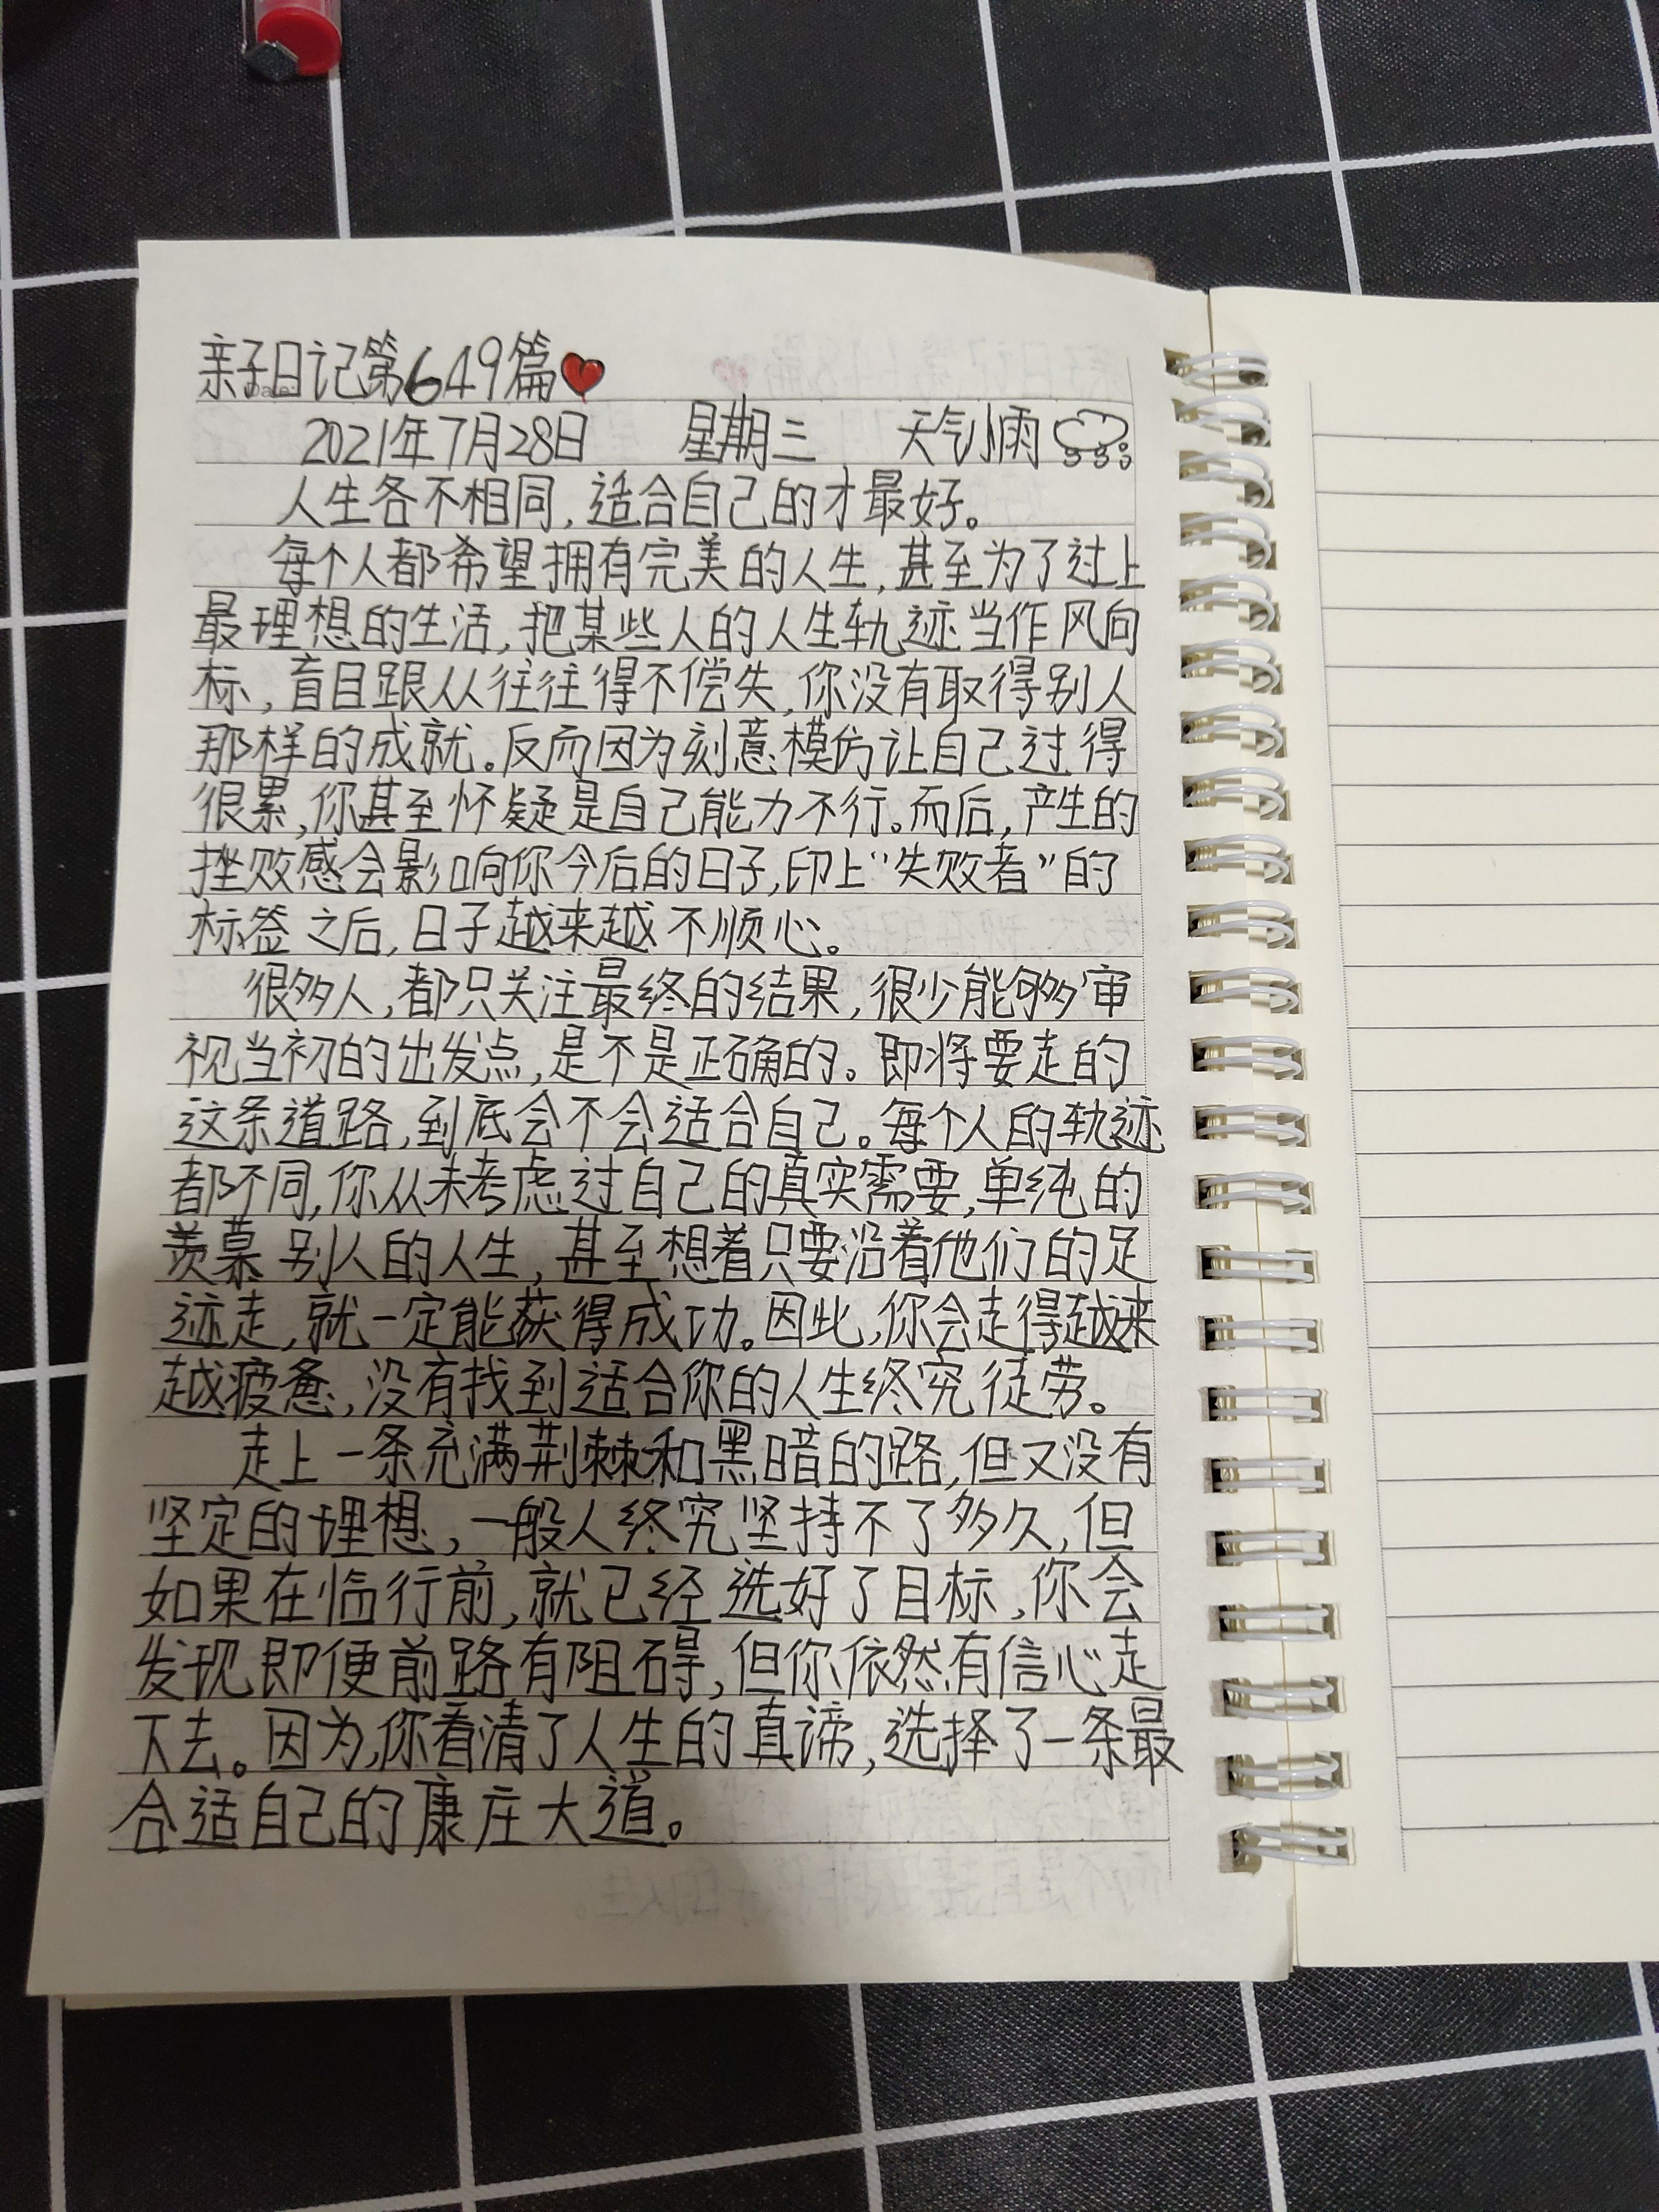 亲子日记第649篇
2021年7月28日 星期三 天气小雨
人生各不相同,适合自己的才最好。
每个人都希望拥有完美的人生,甚至为了过上
最理想的生活,把某些人的人生轨迹当作风向
标,盲目跟从往往得不偿失,你没有取得别人
那样的成就。反而因为刻意模仿让自己过得
很累,你甚至怀疑是自己能力不行。而后,产生的
挫败感会影响你今后的日子,印上“失败者”的
标签之后,日子越来越不顺心。
很多人,都只关注最终的结果,很少能够审
视当初的出发点,是不是正确的。即将要走的
这条道路,到底会不会适合自己。每个人的轨迹
都不同,你从未考虑过自己的真实需要,单纯的
羡慕别人的人生,甚至想着只要沿着他们的足
迹走,就一定能获得成功。因此,你会走得越来
越疲惫,没有找到适合你的人生终究徒劳。
走上一条充满荆棘和黑暗的路,但又没有
坚定的理想,一般人终究坚持不了多久,但
如果在临行前,就已经选好了目标,你会
发现即便前路有阻碍,但你依然有信心走
下去。因为,你看清了人生的真谛,选择了一条最
合适自己的康庄大道。